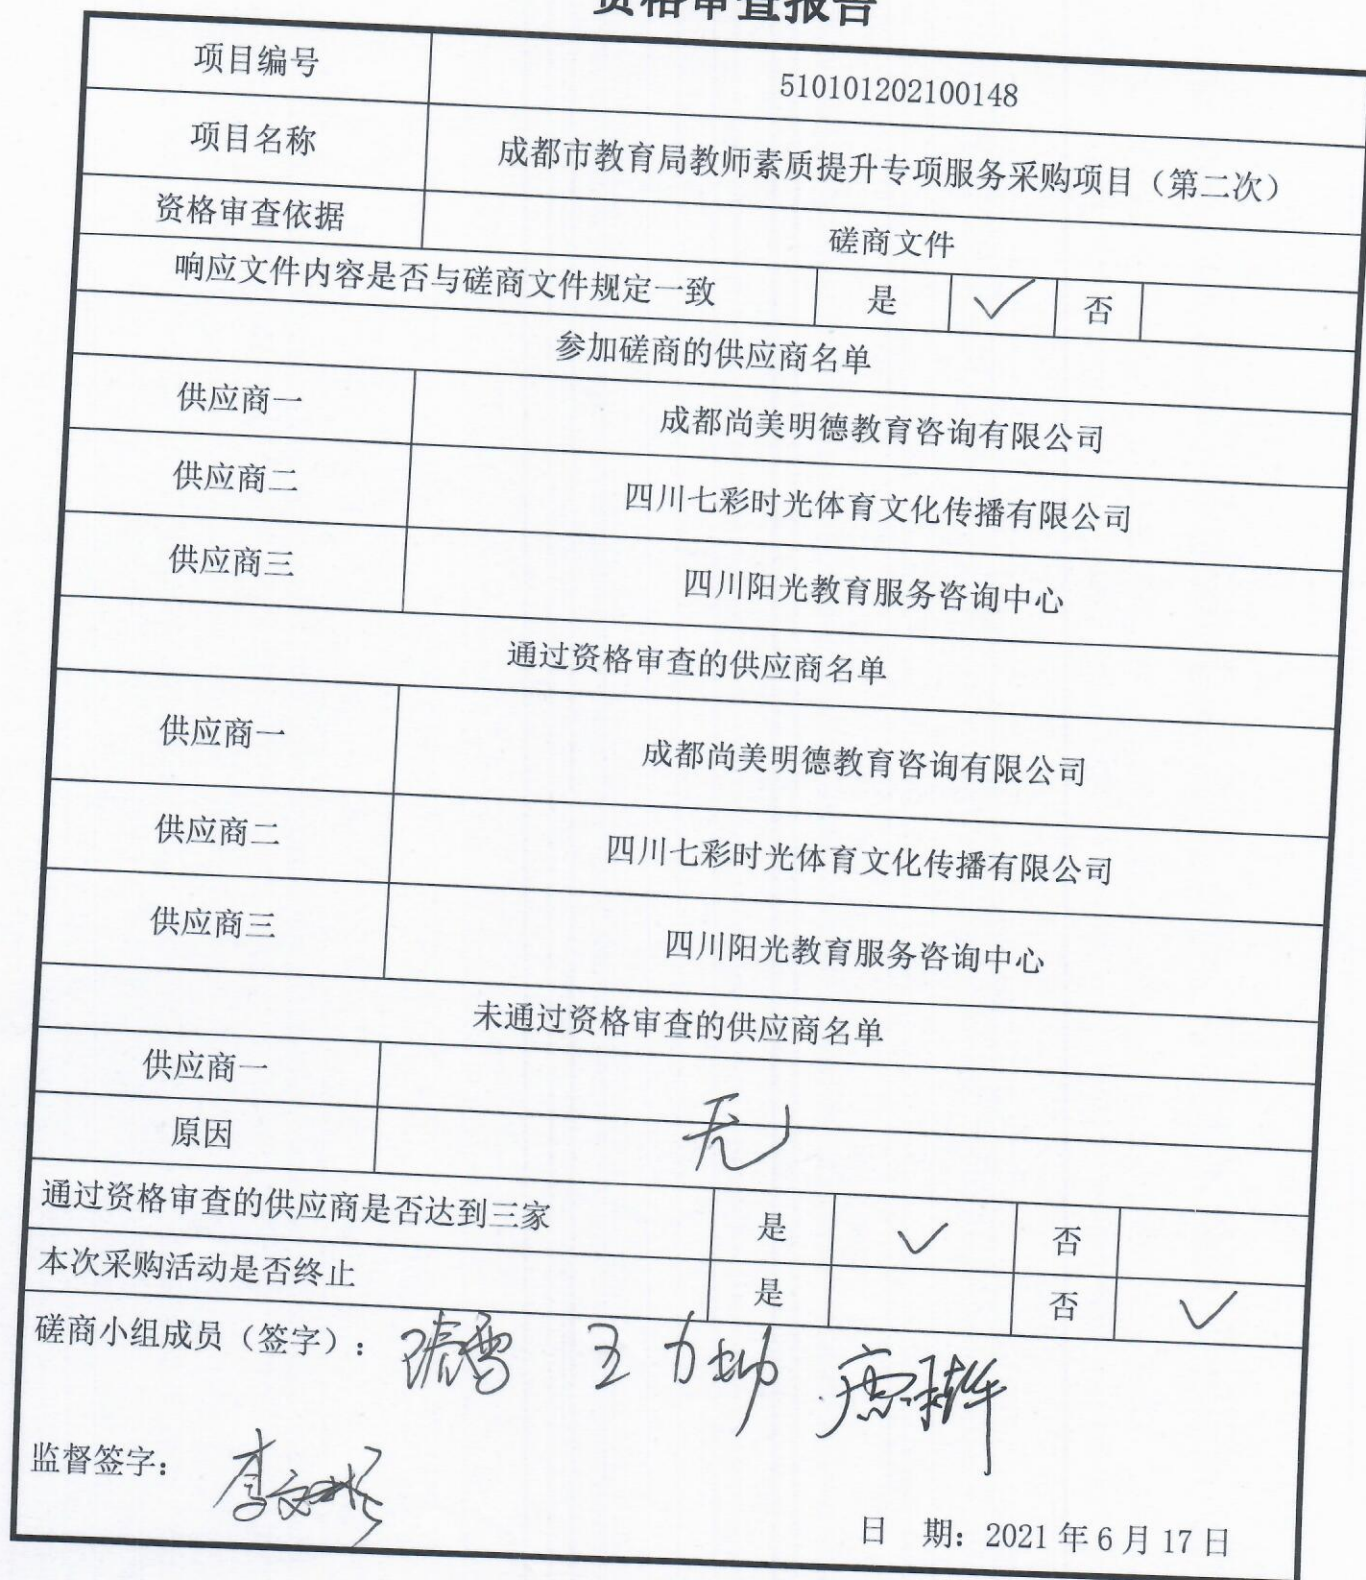 资格审查报告
项目编号 510101202100148
项目名称 成都市教育局教师素质提升专项服务采购项目（第二次）
资格审查依据 磋商文件
响应文件内容是否与磋商文件规定一致 是 ✓ 否
参加磋商的供应商名单
供应商一 成都尚美明德教育咨询有限公司
供应商二 四川七彩时光体育文化传播有限公司
供应商三 四川阳光教育服务咨询中心
通过资格审查的供应商名单
供应商一 成都尚美明德教育咨询有限公司
供应商二 四川七彩时光体育文化传播有限公司
供应商三 四川阳光教育服务咨询中心
未通过资格审查的供应商名单
供应商一
原因 无
通过资格审查的供应商是否达到三家 是 ✓ 否
本次采购活动是否终止 是 否 ✓
磋商小组成员（签字）：
监督签字：
日 期：2021 年 6 月 17 日